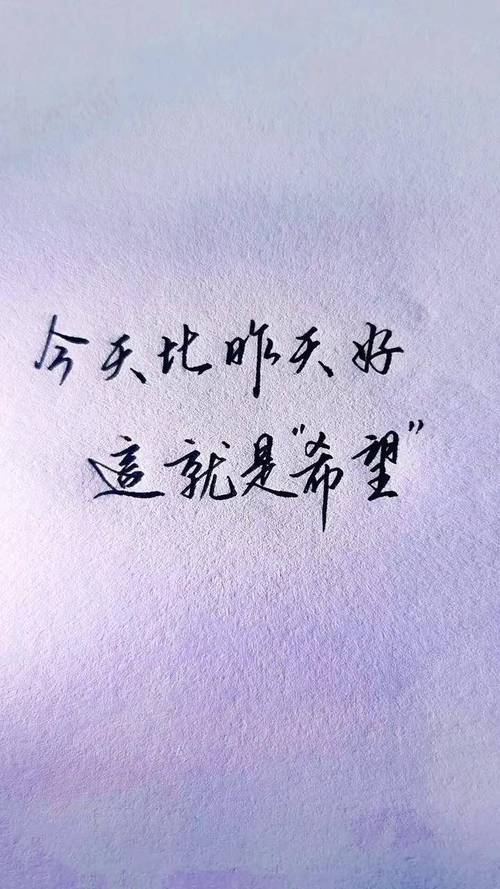 今天比昨天好
這就是"希望"